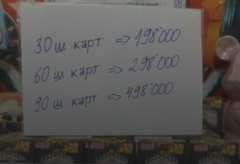 30 ш карт => 198'000
60 ш карт => 298'000
90 ш карт => 498'000